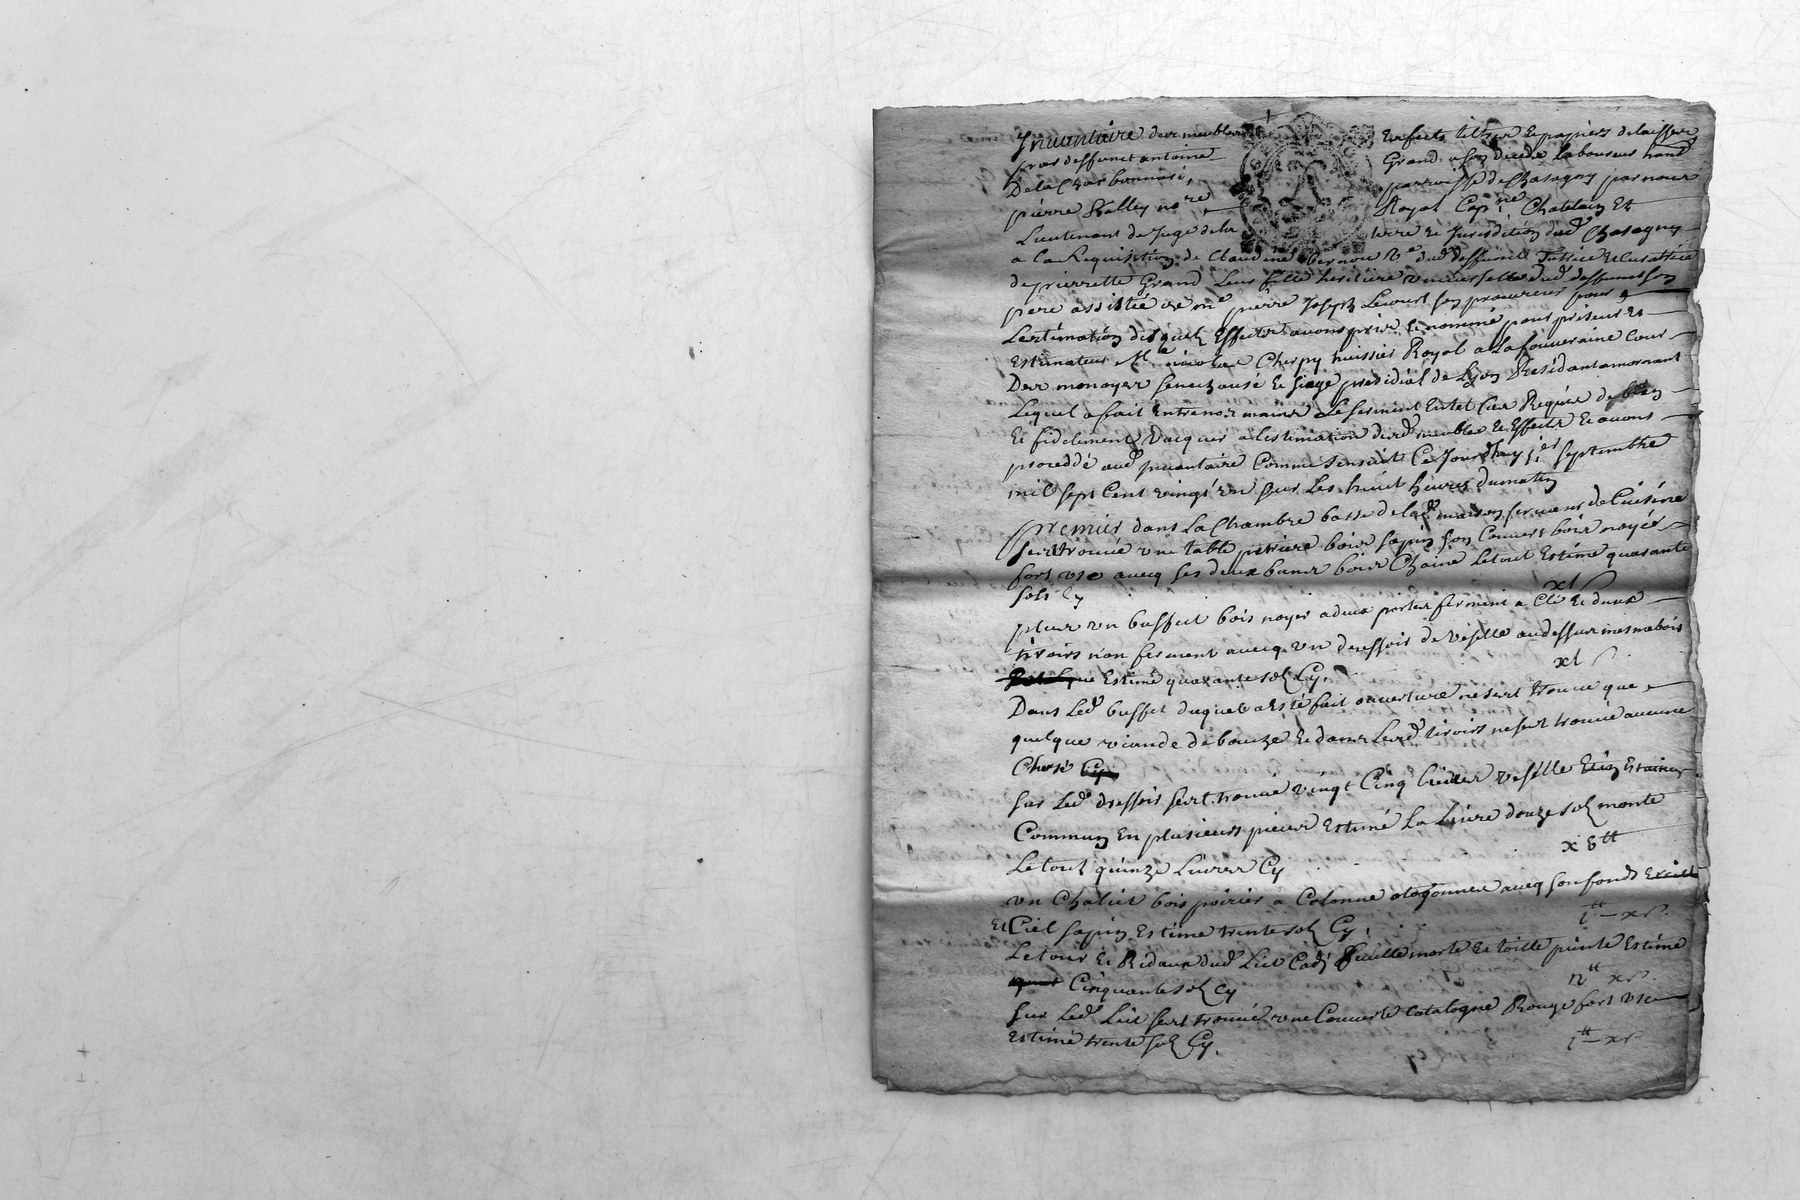 Inuantaire des meubles Effects tiltres & papiers delaissés
par deffunct antoine Grand a son decede laboureur hant
De la Charbonniere, parroisse de Chasagny par nous
pierre Valley nore Royal Capne Chatelain Et
Lieutenant de Juge de la terre & Jurisdition dud Chasagny
a la Requisition de Claudine Vernou Ve dud deffunct Tutrice & Curatrice
de pierrette Grand Leur fille heritiere universelle dud deffunct son
pere assistée de me pierre Joseph Lecourt son procureur pour
Lestimation desquels Effects auons pris & nommé pour priseur Et
Estimateur Me nicolas Cherpy huissier Royal a la souueraine Cour
Des monoyes senechausé & siege presidial de Lyon Residant a mornant
Lequel a fait Entre nos mains Le serment En tel Cas Requis de bien
Et fidelement Vacquer a lestimation desd meubles & Effects & auons
proceddé aud Inuantaire Comme sensuit Ce Jourdhuy 1er septembre
mil sept Cent vingt un sur Les huict heures du matin
premier dans La Chambre basse de lad maison seruant de Cuisine
sest trouué une table petriere bois sapin son Couuert bois noyer
fort usé auecq ses deux bancs bois Chaine Le tout Estimé quarante
sols Cy xl s
plus un buffect bois noyer a deux portes ferment a Clé & deux
tiroirs non ferment auecq un dressoir de veselle au dessus mesme bois
Estimé quarante sols Cy. xl s
Dans Led buffet duquel a esté fait ouuerture ne sest trouué que
quelque viande de bouche & dans Lesd tiroirs ne sest trouué aucune
Chose
sur Led dressoir sest trouué vingt Cinq Liures veselle Estain
Commun En plusieurs pieces Estimé La Liure douze sols monte
Le tout quinze Liures Cy xv tt
un Chalict bois poirier a Colonne otogonnes auecq son fonds
Et Ciel sapin Estimé trente sols Cy. 1 tt x s.
Le tour & Ridaux dud Lict Cadis feuille morte & toille peinte Estimé
Cinquante sols Cy 11 tt x s.
sur Led Lict sest trouué une Couuerte Catalogne Rouge fort usé
Estimé trente sols Cy. 1 tt x s